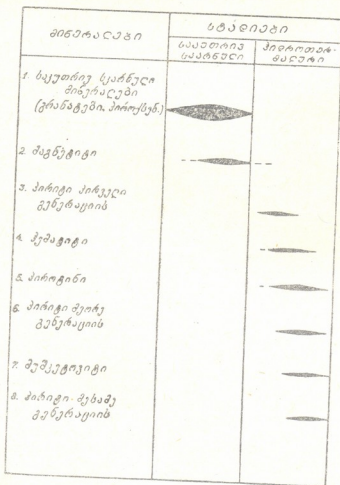 მინერალები
სტადიები
საკუთრივ სკარნული
ჰიდროთერმალური
1. საკუთრივ სკარნული
მინერალები
(გრანატები, პიროქსენ.)
2. მაგნეტიტი
3. პირიტი პირველი
გენერაციის
4. ჰემატიტი
5. პიროტინი
6. პირიტი მეორე
გენერაციის
7. მუშკეტოვიტი
8. პირიტი მესამე
გენერაციის